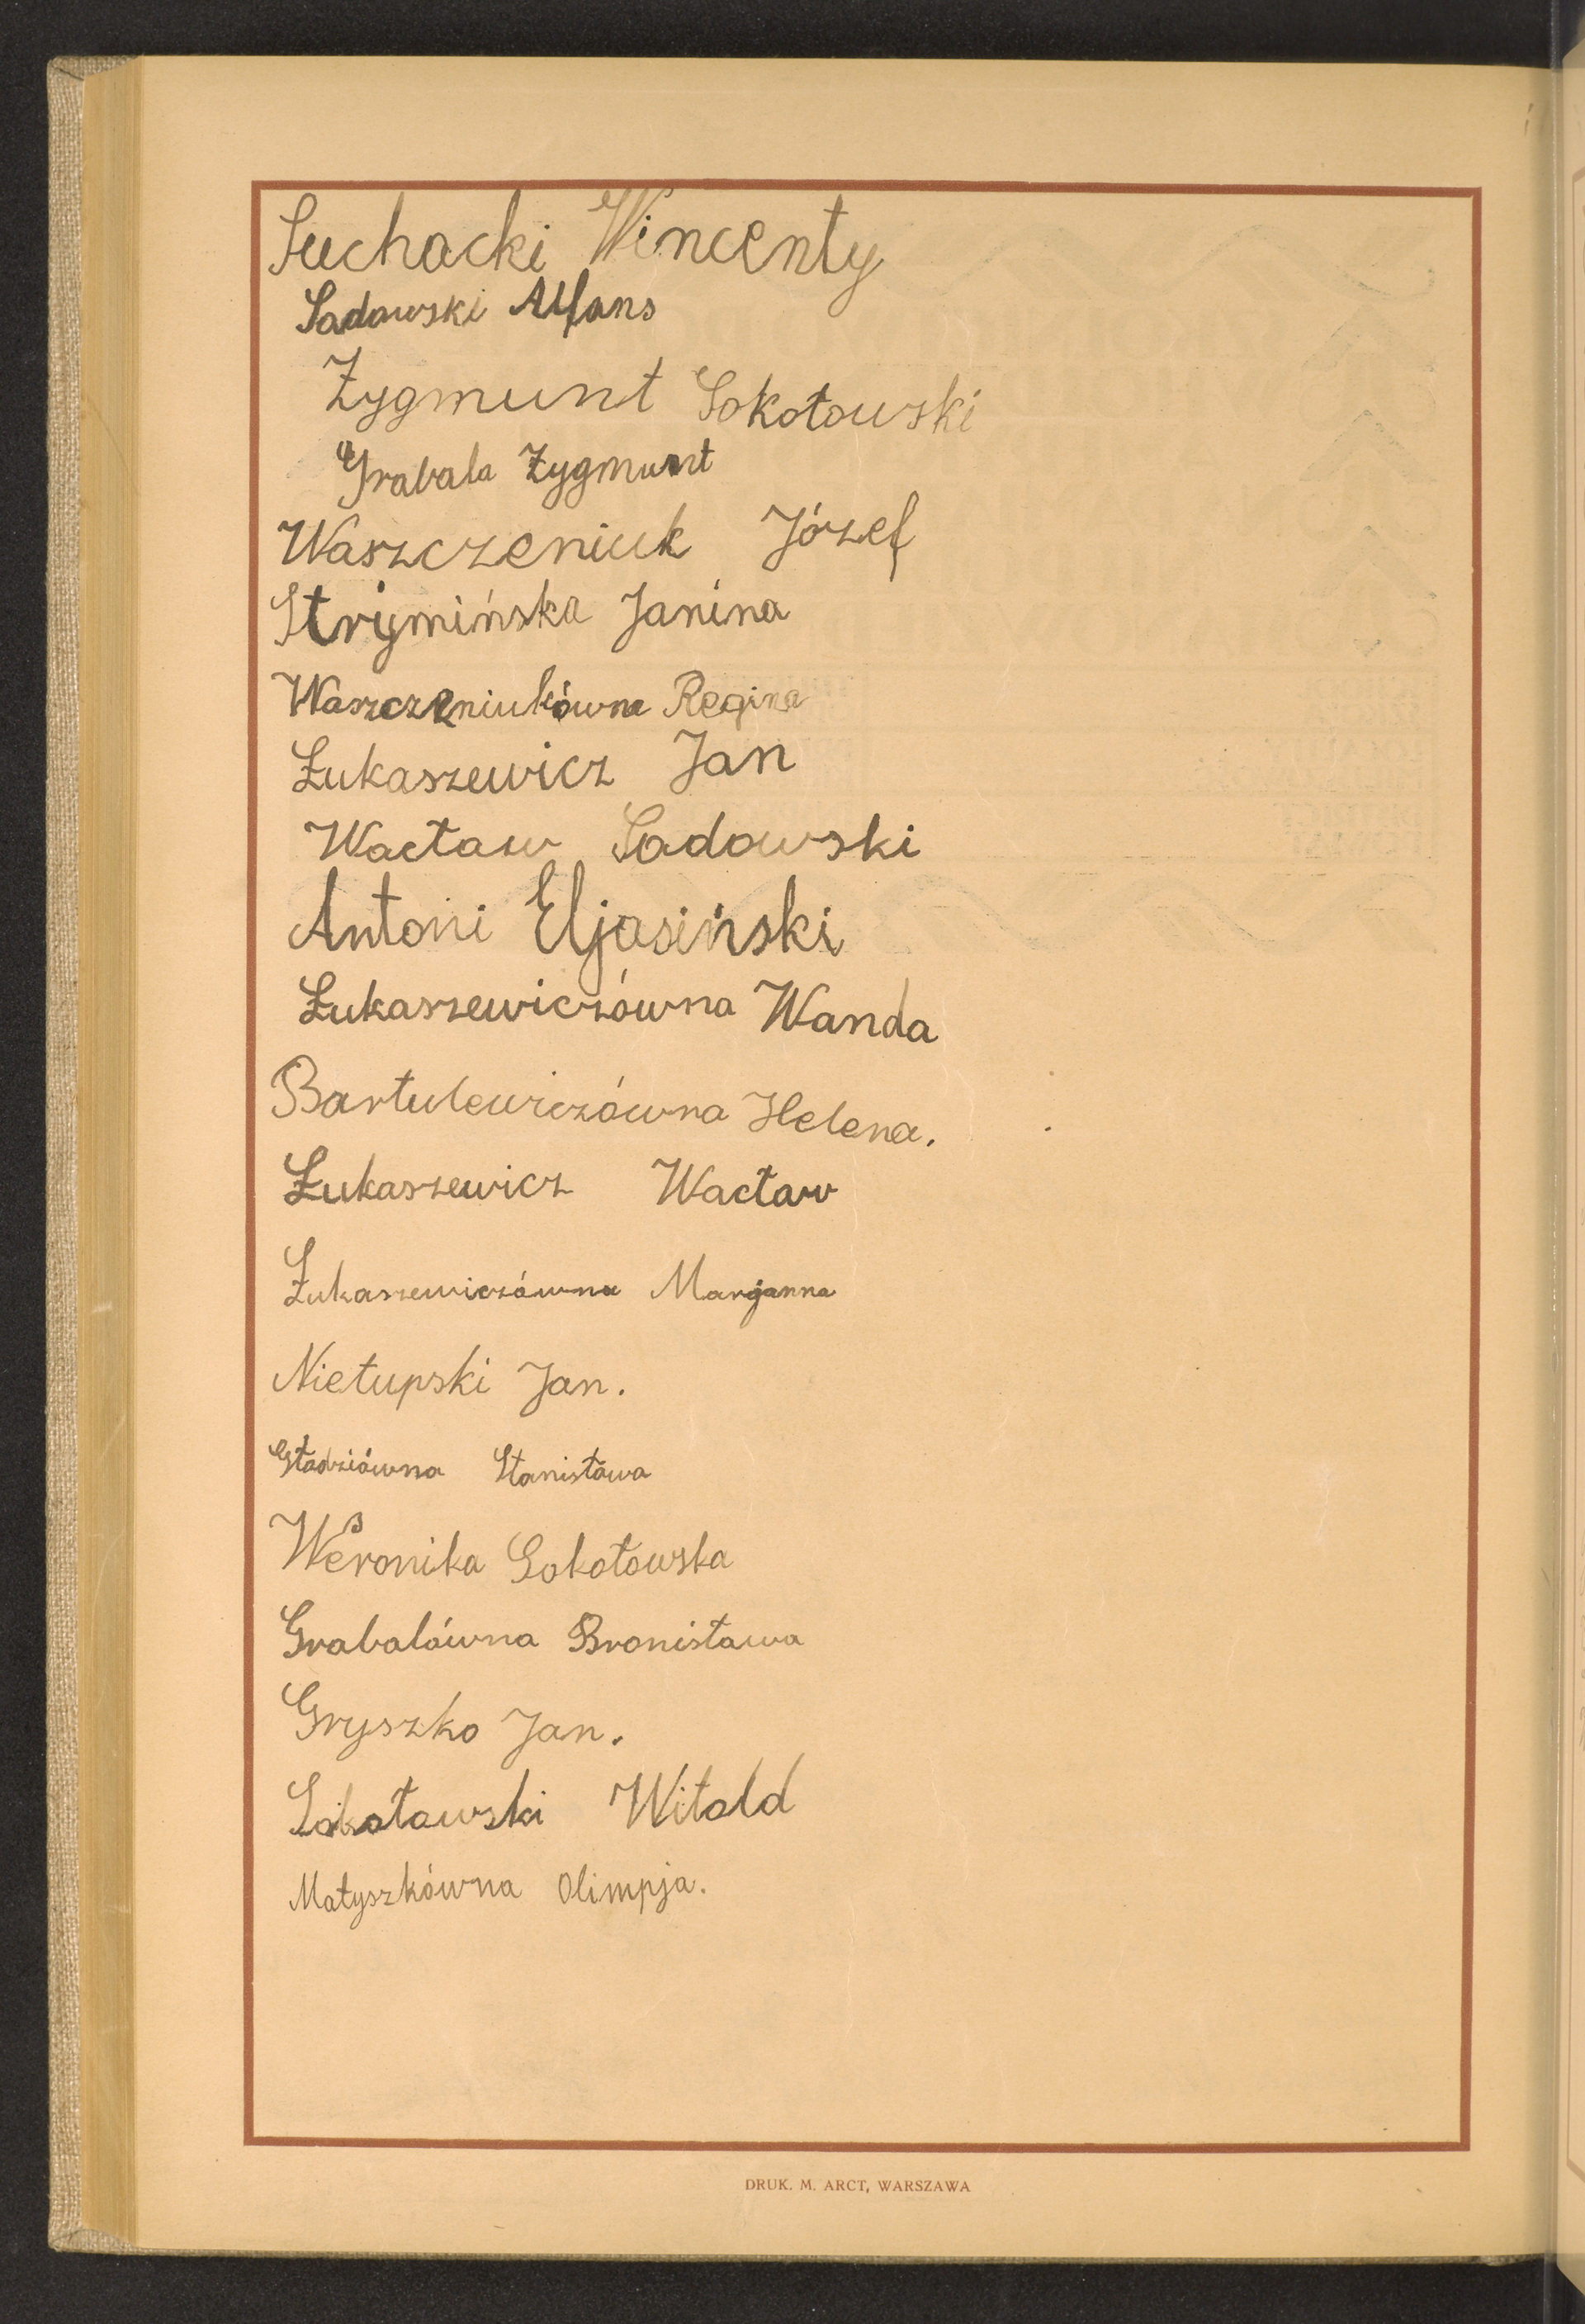 Suchocki Wincenty
Sadowski Alfons
Zygmunt Sokołowski
Grabala Zygmunt
Waszczeniuk Józef
Strymińska Janina
Waszczeniukówna Regina
Łukaszewicz Jan
Wacław Sadowski
Antoni Eljasiński
Łukaszewiczówna Wanda
Bartulewiczówna Helena.
Łukaszewicz Wacław
Łukaszewiczówna Marjanna
Nietupski Jan.
Stanisława
Weronika Sokołowska
Grabalówna Bronisława
Gryszko Jan.
Sokołowski Witold
Matyszkówna Olimpja.
DRUK. M. ARCT, WARSZAWA